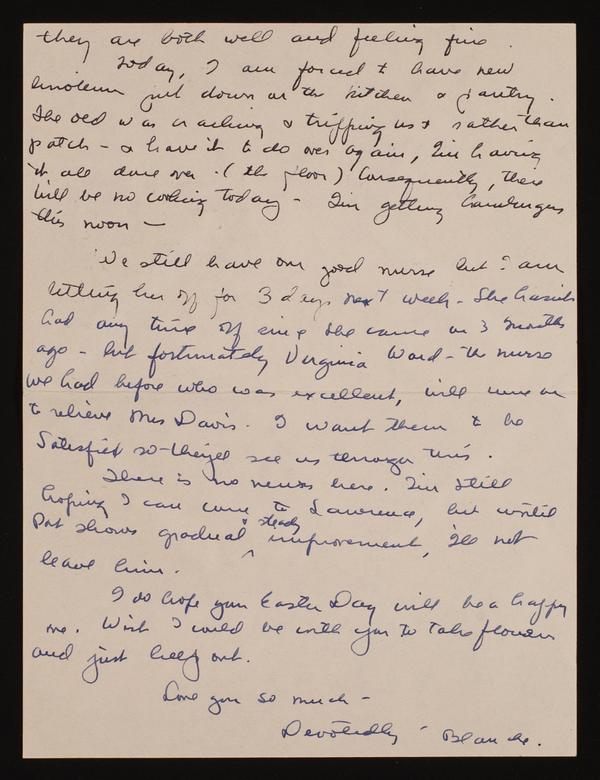 they are both well and feeling fine.
Today, I am forced to have new
linoleum put down on the kitchen & pantry.
The old was cracking & tripping us & rather than
patch - & have it to do over again, I'm having
it all done over. (the floor) Consequently, there
will be no cooking today - I'm getting hamburgers
this noon -
We still have our good nurse but I am
letting her off for 3 days next week - She hasn't
had any time off since she came on 3 months
ago - but fortunately Virginia Ward - the nurse
we had before who was excellent, will come on
to relieve Mrs Davis. I want them to be
satisfied so they'll see us through this.
There is no news here. I'm still
hoping I can come to Lawrence, but until
Pat shows gradual & steady improvement, I'll not
leave him.
I do hope your Easter Day will be a happy
one. Wish I could be with you to take flowers
and just help out.
Love you so much -
Devotedly - Blanche.